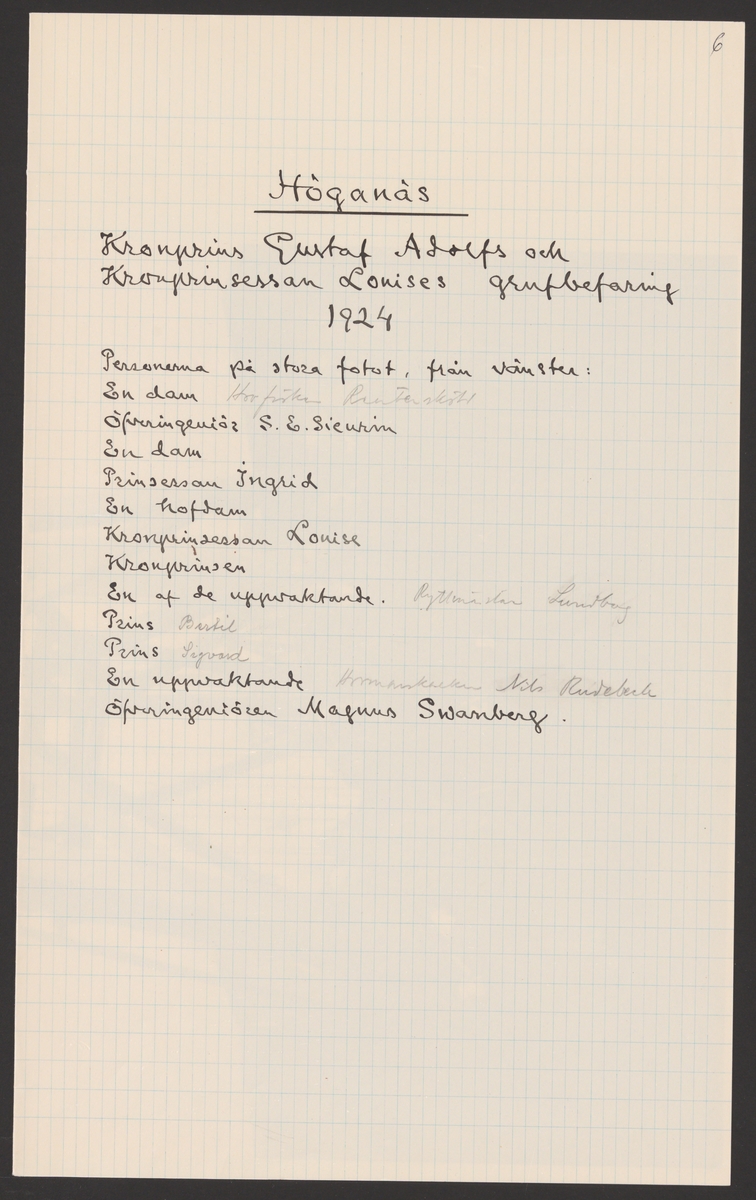 6
Höganäs
Kronprins Gustaf Adolfs och
Kronprinsessan Louises grufbefaring
1924
Personerna på stora fotot, från vänster:
En dam Hovfröken Reuterskiöld
Öfveringeniör S. E. Sieurin
En dam
Prinsessan Ingrid
En hofdam
Kronprinsessan Louise
Kronprinsen
En af de uppvaktande. Ryttmästare Lundborg
Prins Bertil
Prins Sigvard
En uppvaktande Hovmarskalken Nils Rudebeck
Öfveringeniören Magnus Swanberg.